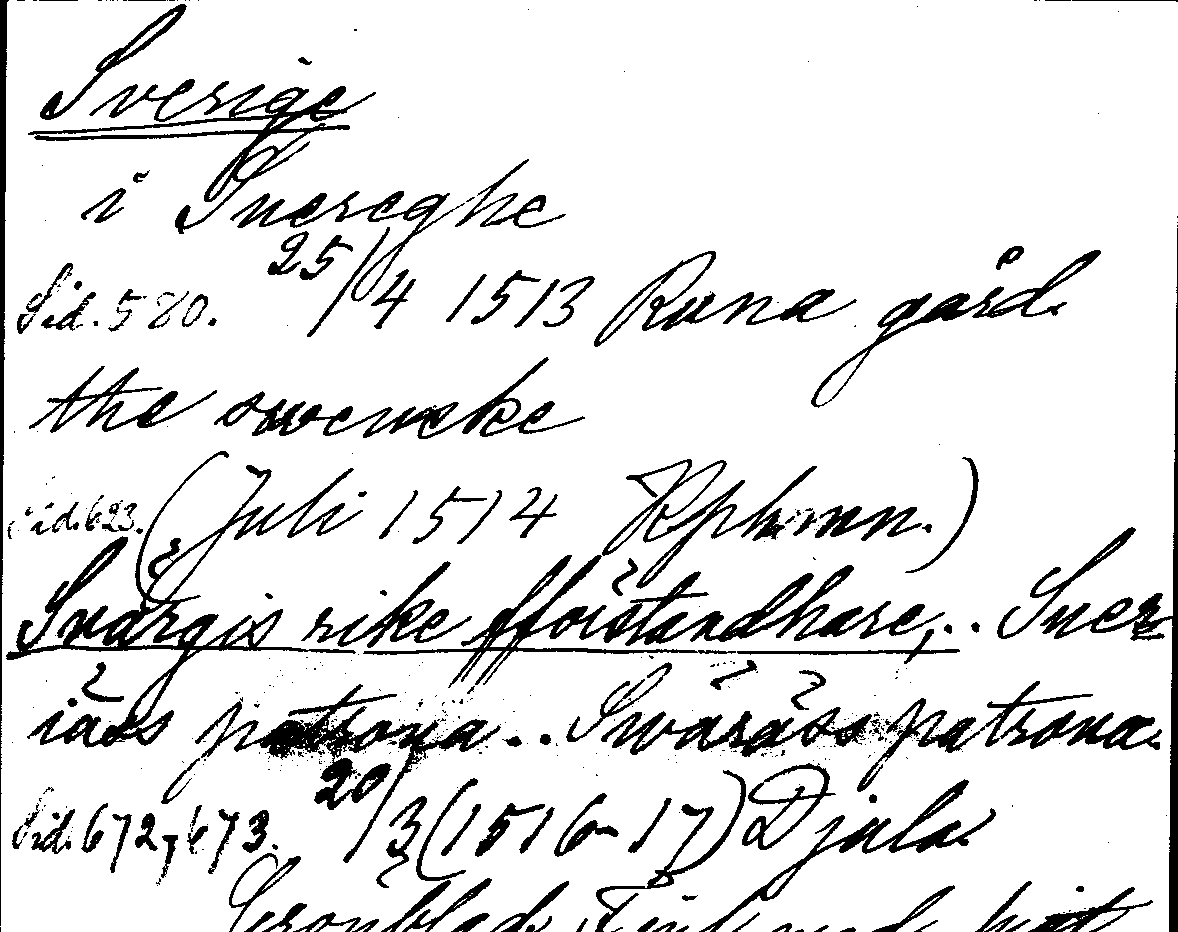 Sverige
i Suereghe
Sid. 580. 25/4 1513 Runa gård.
the swenske
Sid. 623. (Juli 1514 Kphmn.)
Svärgis rike fforstandhare,.. Suer-
iäes patrona.. Swäräss patrona.
Sid. 672, 673. 20/3 (1516-17) Djula.
Grönblad: